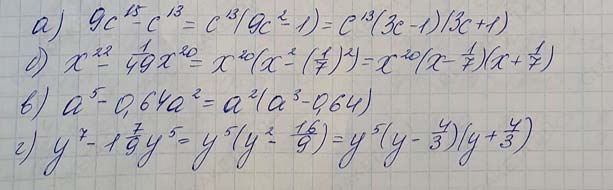 а) 9c¹⁵ - c¹³ = c¹³(9c² - 1) = c¹³(3c - 1)(3c + 1)
б) x²² - 1/49 x²⁰ = x²⁰(x² - (1/7)²) = x²⁰(x - 1/7)(x + 1/7)
в) a⁵ - 0,64a² = a²(a³ - 0,64)
г) y⁷ - 1 7/9 y⁵ = y⁵(y² - 16/9) = y⁵(y - 4/3)(y + 4/3)